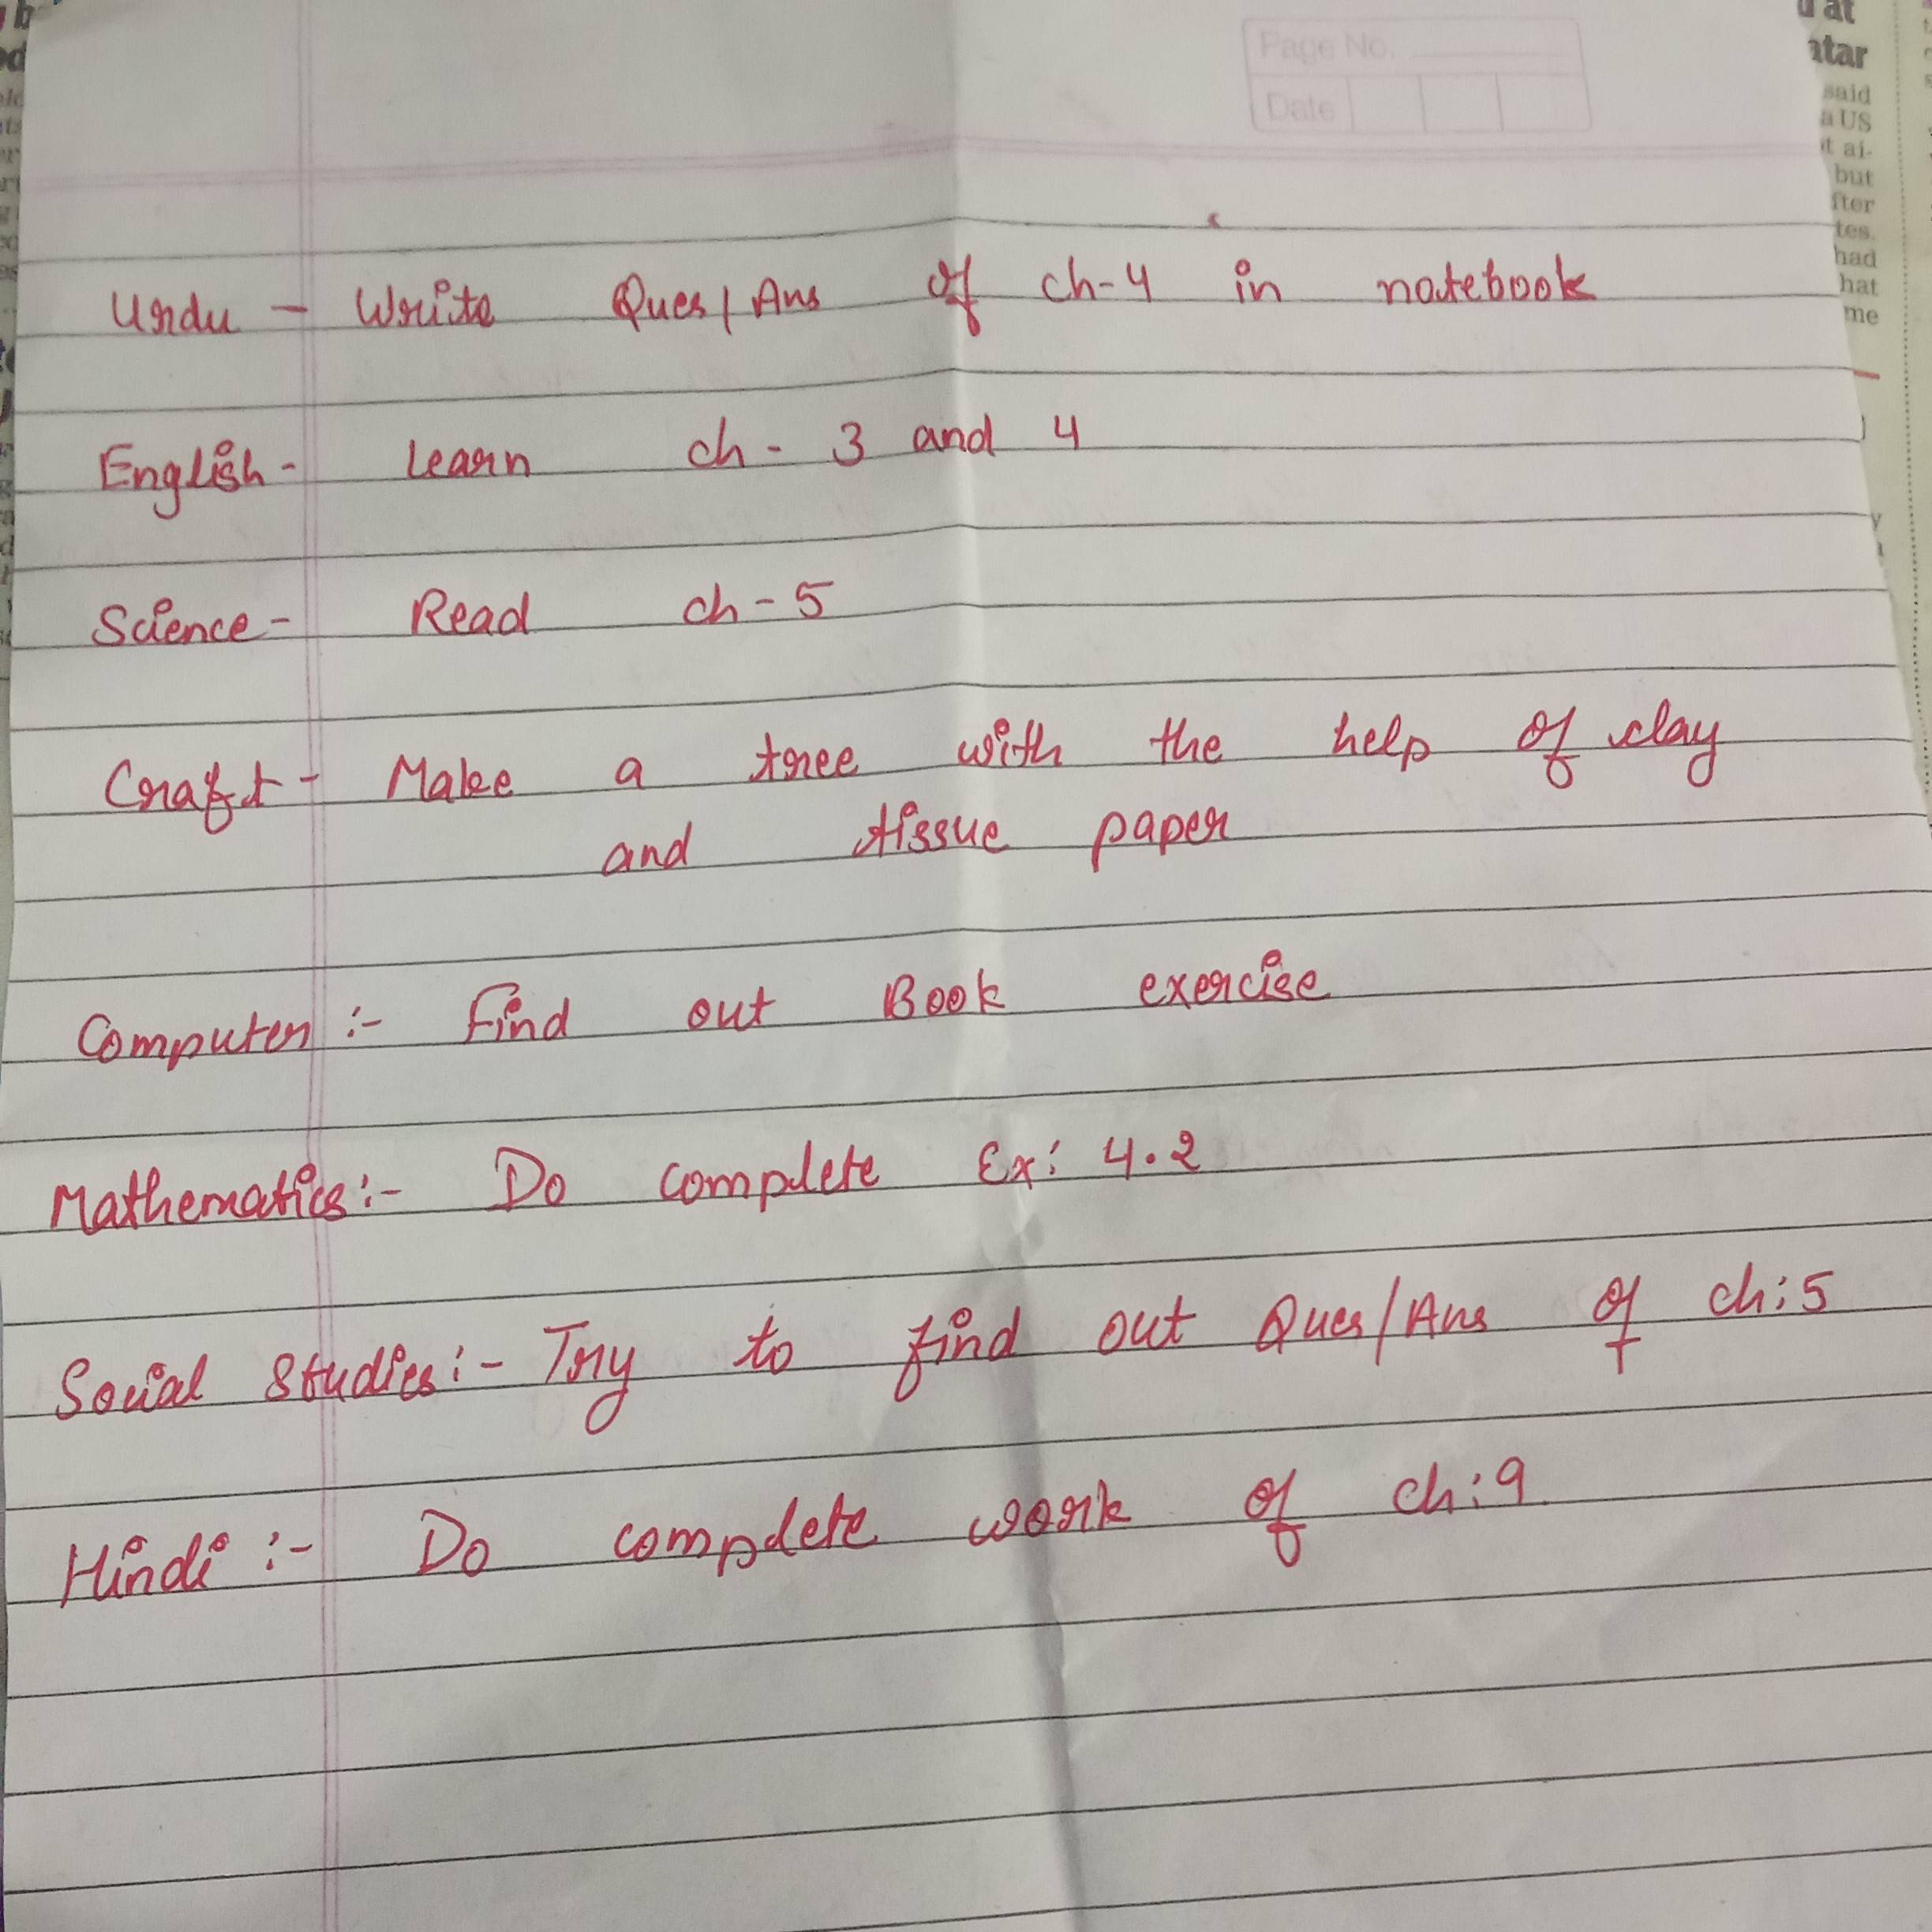 Page No.
Date
Urdu - Write Ques/Ans of ch-4 in notebook
English - Learn ch - 3 and 4
Science - Read ch - 5
Craft - Make a tree with the help of clay
and tissue paper
Computer :- Find out Book exercise
Mathematics :- Do complete Ex: 4.2
Social Studies :- Try to find out Ques/Ans of ch: 5
Hindi :- Do complete work of ch: 9
atar
said
a US
but
had
hat
me